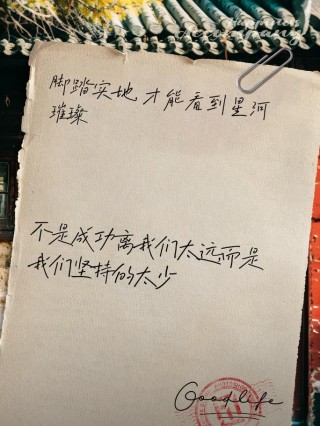 脚踏实地 才能看到星河
璀璨
不是成功离我们太远而是
我们坚持的太少
Goodlife